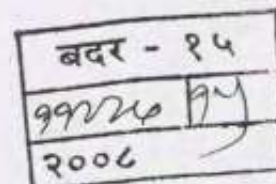 बदर - १५
११२२६ १५
२००८